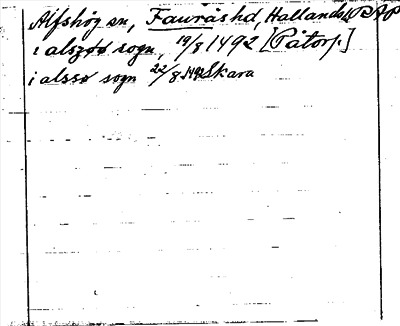 Alfshög sn, Faurås hd, Hallands l. PAP
i alszøø sogn, 19/8 1492 [Påtorp]
i alssø sogn 22/8 1491 Skara